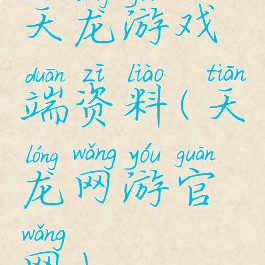 天龙游戏
duān zī liào tiān
端资料(天
lóng wǎng yóu guān
龙网游官
wǎng
网)